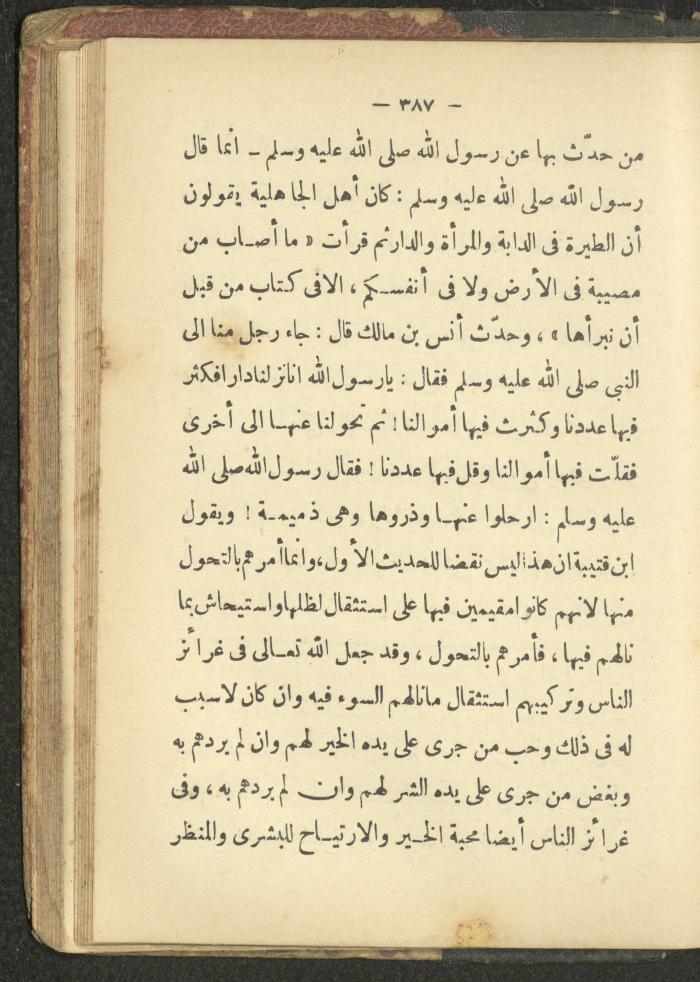 — ٣٨٧ —
من حدّث بها عن رسول الله صلى الله عليه وسلم ـ انما قال
رسول الله صلى الله عليه وسلم : كان أهل الجاهلية يقولون
أن الطيرة فى الدابة والمرأة والدار ثم قرأت « ما أصاب من
مصيبة فى الأرض ولا فى أنفسكم ، الا فى كتاب من قبل
أن نبرأها » ، وحدّث أنس بن مالك قال : جاء رجل منا الى
النبى صلى الله عليه وسلم فقال : يارسول الله انا نزلنا دارا فكثر
فيها عددنا وكثرت فيها أموالنا ! ثم تحولنا عنها الى أخرى
فقلّت فيها أموالنا وقل فيها عددنا ! فقال رسول الله صلى الله
عليه وسلم : ارحلوا عنها وذروها وهى ذميمة ! ويقول
ابن قتيبة ان هذا ليس نقضا للحديث الأول، وانما أمرهم بالتحول
منها لانهم كانوا مقيمين فيها على استثقال لظلها واستيحاش بما
نالهم فيها ، فأمرهم بالتحول ، وقد جعل الله تعالى فى غرائز
الناس وتركيبهم استثقال مانالهم السوء فيه وان كان لا سبب
له فى ذلك وحب من جرى على يده الخير لهم وان لم يردهم به
وبغض من جرى على يده الشر لهم وان لم يردهم به ، وفى
غرائز الناس أيضا محبة الخير والارتياح للبشرى والمنظر